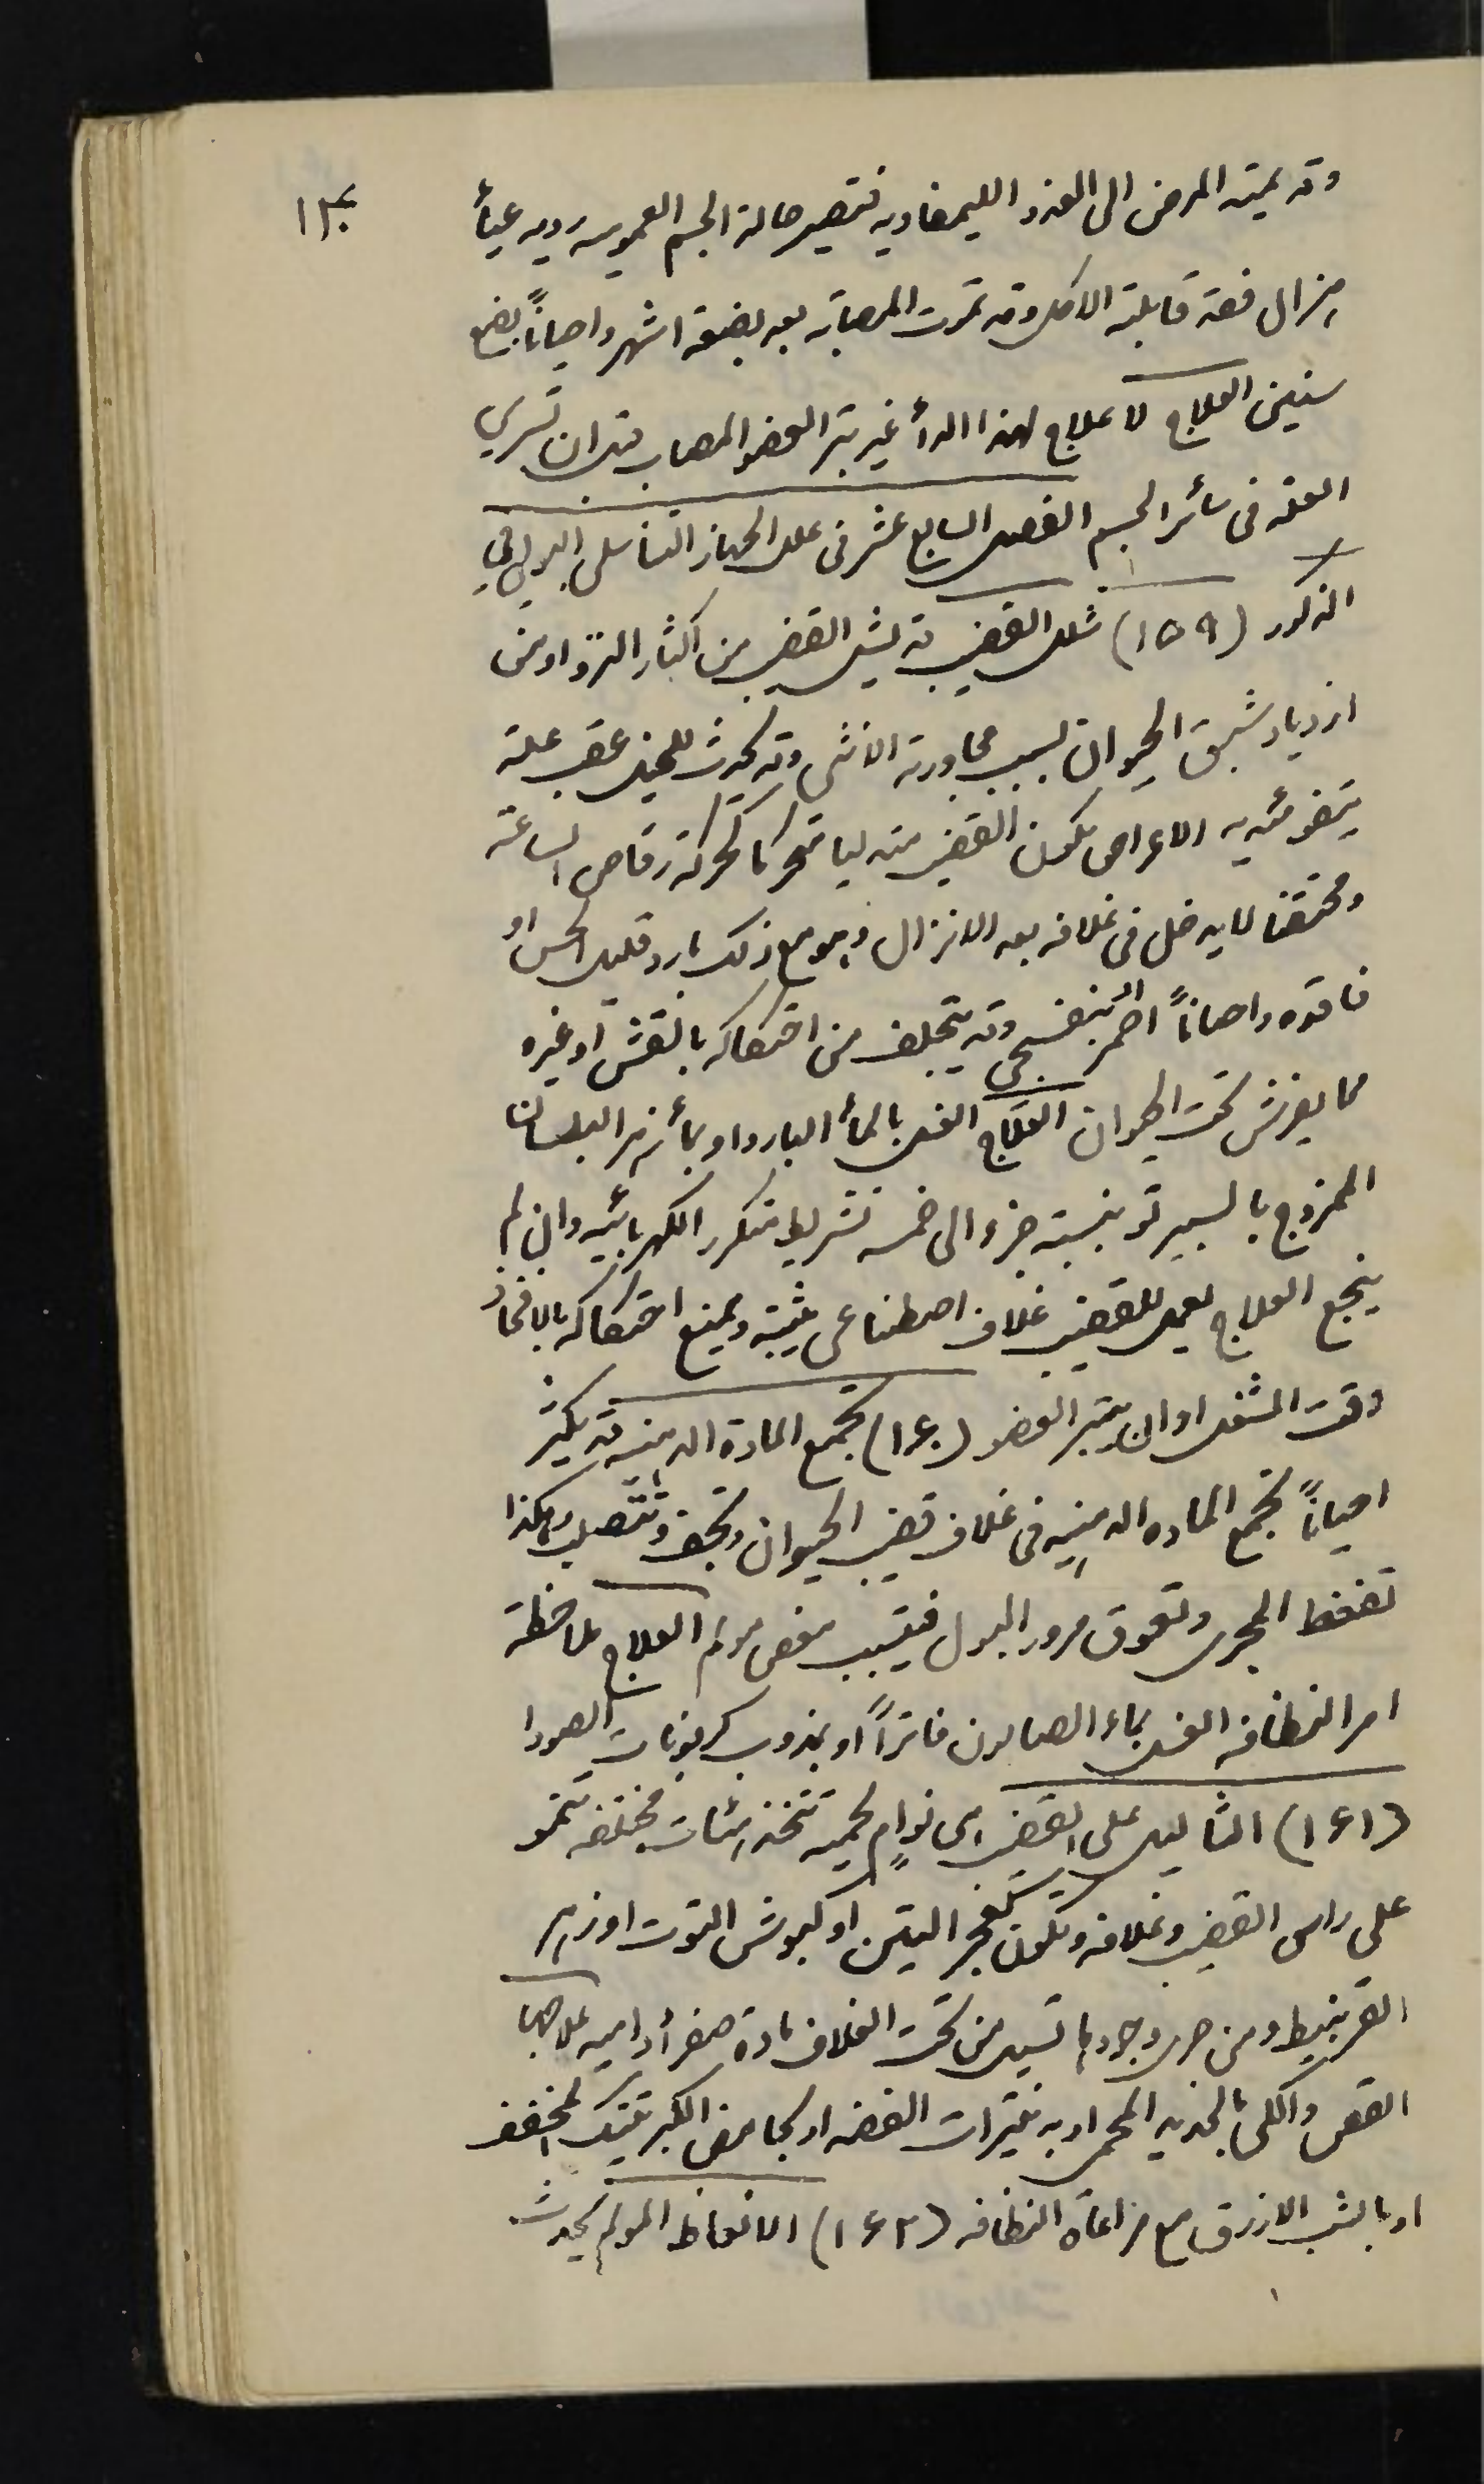 ١٣٠
وقد يمتد المرض الى الغدد الليمفاويه فتصير حالة الجسم العموميه رديه عيأ
هزال فقد قابلية الاكل وقد تموت المصابه بعد بضعة اشهر واحياناً بضع
سنين العلاج لا علاج لهذا الدأ غير بتر العضو المصاب قبل ان تسري
العله فى سائر الجسم الفصل السابع عشر فى علل الجهاز التناسلى البولي في
الذكور (١٥٩) شلل القضيب قد يشل القضيب من اكثار النزو او من
ازدياد شبق الحيوان بسبب مجاورة الانثى وقد يحدث للخيل عقب علة
الاعراض يكون القضيب متدليا متحركا كحركة رقاص الساعة
ومحتقنا لا يدخل فى غلافه بعد الانزال وهو مع ذلك بارد قليل الحس او
فاقده واحياناً احمر بنفسجى وقد يتجلف من احتكاكه بالقش او غيره
مما يفرش تحت الحيوان العلاج الغسل بالمأ البارد او بمأ زهر البلسان
الممزوج بالسبيرتو بنسبة جزء الى خمسه تشريط متكرر الكهربائيه وان لم
ينجع العلاج يعمل للقضيب غلاف اصطناعى يثبته ويمنع احتكاكه بالافخاذ
وقت الشغل او ان يبتر العضو (١٦٠) تجمع المادة الدهنيه قد يكثر
احياناً تجمع الماده الدهنيه فى غلاف قضيب الحيوان وتجف وتتصلب وهكذا
تضغط المجرى وتعوق مرور البول فيتسبب مغص مولم العلاج ملاحظة
امر النظافه الغسل بماء الصابون فاتراً او بمذوب كربونات الصودا
(١٦١) الثاليل على القضيب هى نوامٍ لحميه تتخذ هيئات مختلفه تنمو
على راس القضيب وغلافه وتكون كفجر التين او كبوش التوت او زهر
القرنبيط ومن جرى وجودها تسيل من تحت الغلاف مادة صفرأ داميه علاجها
القص والكى بالحديد المحمر او به نيترات الفضه او بحامض الكبريتيك المخفف
او بالشب الازرق مع مراعاة النظافه (١٦٢) الانعاظ المولم يحدث